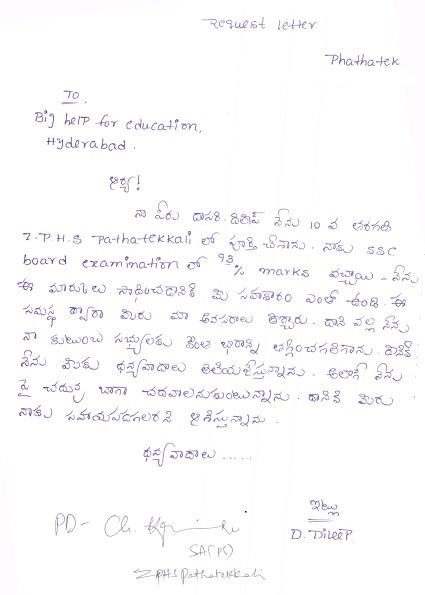 Request letter
Phathatek
To.
Big help for education,
Hyderabad.
ఆర్య!
నా పేరు దాసరి. దిలీప్ నేను 10 వ తరగతి
Z.P.H.S Pathatekkali లో పూర్తి చేసాను. నాకు SSC
board examination లో 93% marks వచ్చాయి - నేను
ఈ మార్కులు సాధించడానికి మీ సహకారం ఎంతో ఉంది. ఈ
సమస్థ ద్వారా మీరు మా అవసరాలు తీర్చారు. దాని వల్ల నేను
నా కుటుంబ సభ్యులకు కొంత భారాన్ని తగ్గించగలిగాను. దానికి
నేను మీకు ధన్యవాదాలు తెలియజేస్తున్నాను. అలాగే నేను
పై చదువు బాగా చదవాలనుకుంటున్నాను. దానికి మీరు
నాకు సహాయపడగలరని ఆశిస్తున్నాను.
ధన్యవాదాలు .....
ఇట్లు
D. Dileep.
PD- Ch.
SA(PS)
ZPHS Pathatekkali